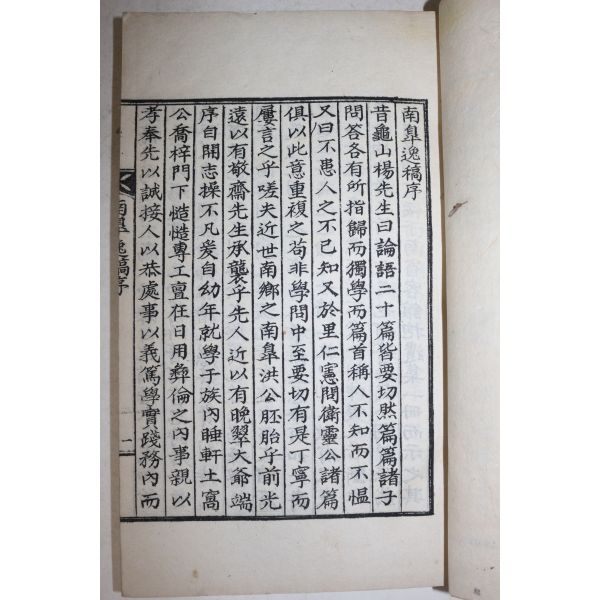 南臯逸稿序
昔龜山楊先生曰論語二十篇皆要切然篇篇諸子
問答各有所指歸而獨學而篇首稱人不知而不慍
又曰不患人之不已知又於里仁憲問衛靈公諸篇
俱以此意重複之苟非學問中至要切有是丁寧而
屢言之乎嗟夫近世南鄉之南臯洪公胚胎乎前光
遠以有敬齋先生承襲乎先人近以有晚翠大爺端
序自開志操不凡爰自幼年就學于族內睡軒土窩
公喬梓門下慥慥專工亶在日用彛倫之內事親以
孝奉先以誠接人以恭處事以義篤學實踐務內而
南臯逸稿序
一